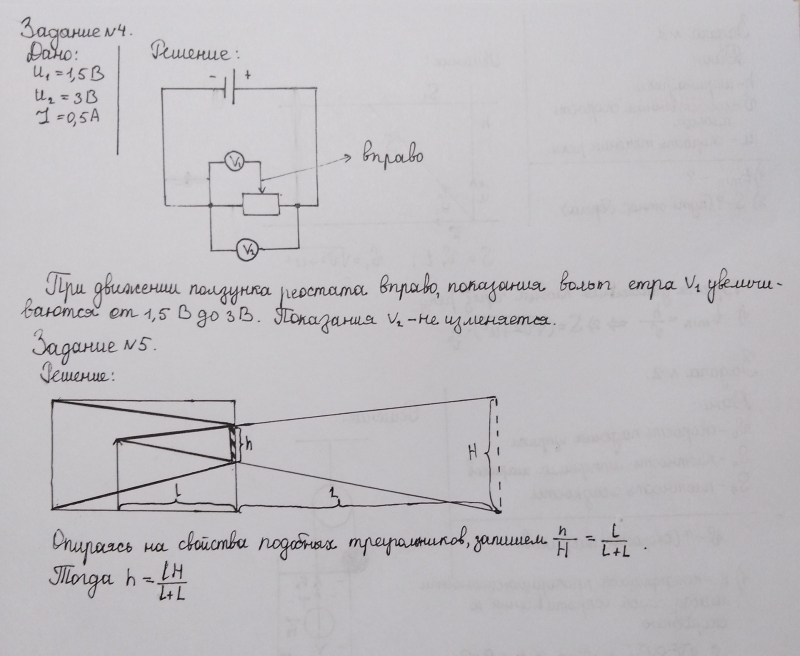 Задание №4.
Дано:
Решение:
U₁ = 1,5 В
U₂ = 3 В
I = 0,5 А
- +
V₁
вправо
V₂
При движении ползунка реостата вправо, показания вольт етра V₁ увеличи-
ваются от 1,5 В до 3 В. Показания V₂ - не изменяется.
Задание №5.
Решение:
h
H
l
L
Опираясь на свойства подобных треугольников, запишем h/H = l/L+L.
Тогда h = lH/l+L